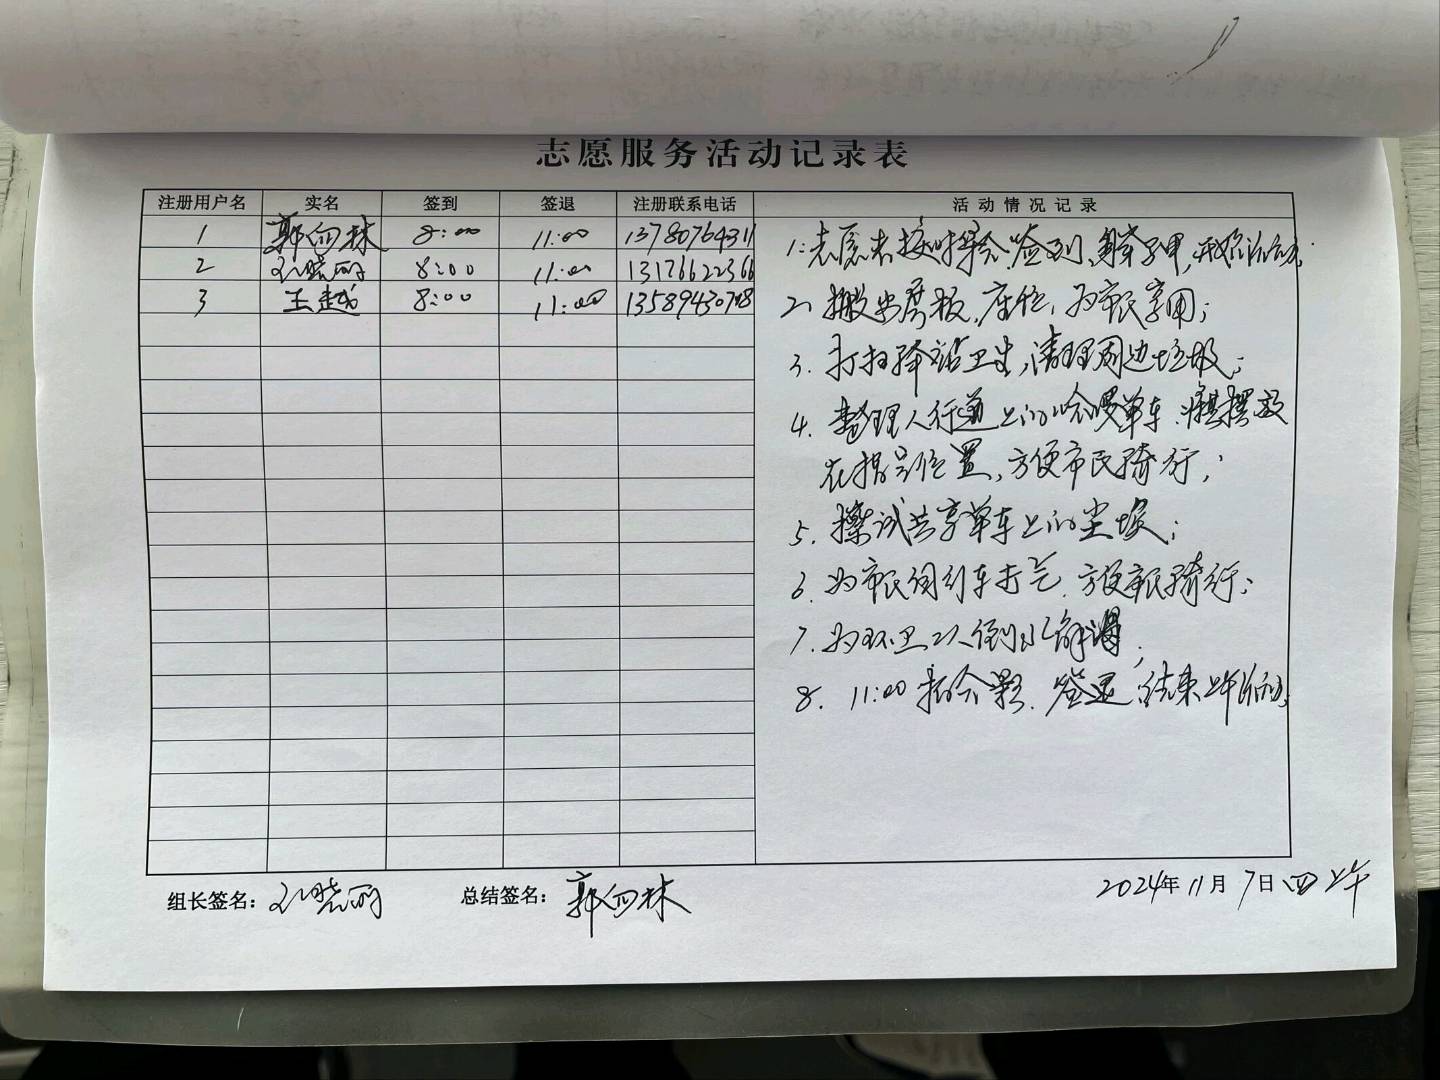 志愿服务活动记录表
注册用户名 实名 签到 签退 注册联系电话 活动情况记录
1 郭向林 8:00 11:00
2 孔晓丽 8:00 11:00 13176622366
3 王越 8:00 11:00
1. 志愿者按时集合、签到、穿马甲,开始活动;
2、搬出展板、座位,为市民享用;
3. 打扫驿站卫生,清理周边垃圾;
4. 整理人行道上的哈啰单车、摆放
在指定位置,方便市民骑行;
5. 擦试共享单车上的尘埃;
6. 为市民自行车打气,方便市民骑行;
7. 为环卫工人倒水解渴;
8. 11:00 拍合影、签退、结束上午活动;
组长签名: 孔晓丽 总结签名: 郭向林 2024年11月7日四上午